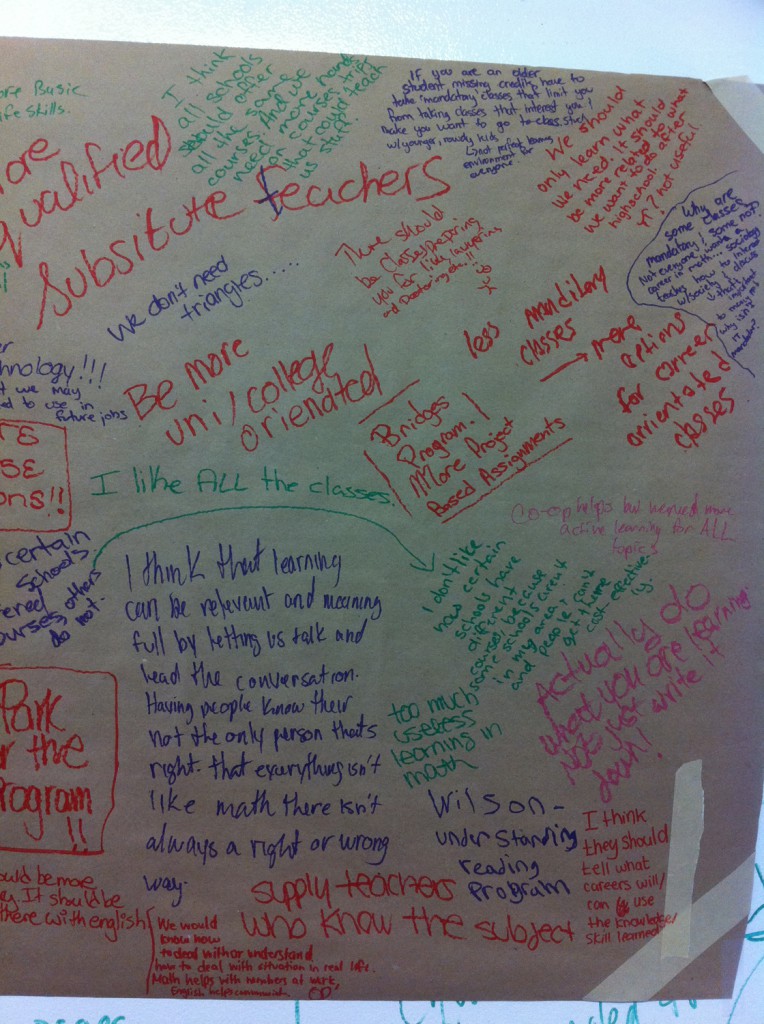 ore Basic
ife Skills.
I think
all schools
should offer
all the same
courses. And we
need more hands
on courses that
that could teach
us stuff.
If you are an older
student missing credits, have to
take "mandatory" classes that limit you
from taking classes that interest you /
make you want to go to class. stuck
w/ younger, rowdy kids.
not perfect learning
environment for
everyone
We should
only learn what
we need. It should
be more related to what
we want to do after
highschool.
not useful
Why are
some classes
mandatory / some not?
Not everyone wants a
career in math... sociology
teaches how to interact
w/ society
why isn't
it
mandatory?
ore
qualified
substitute teachers
We don't need
triangles.....
There should
be classes preparing
you for like lawyering
and Doctoring etc..!!
less manditory
classes
→ more
options
for career
orrientated
classes
hnology!!!
t we may
ed to use in
future jobs
Be more
uni/college
oriendted
Bridges
Program!
More Project
Based Assignments
SE
ons!!
I like ALL the classes.
Co-op helps but we need more
active learning for ALL
topics
certain
schools
fered
ourses, others
do not.
I think that learning
can be relevant and meaning
full by letting us talk and
lead the conversation.
Having people know their
not the only person thats
right. that everything isn't
like math there isn't
always a right or wrong
way.
I don't like
how certain
schools have
different
courses, because
some schools aren't
in my area,
and people can't
get there
cost effective-
ly.
Actually do
what you are learning.
Not just write it
down!
too much
useless
learning in
math
Park
r the
rogram
!!
Wilson -
understanding
reading
program
I think
they should
tell what
careers will/
can use
the knowledge/
skill learned
ould be more
ey. It should be
there with english
supply teachers
who know the subject
We would
know how
to deal with or understand
how to deal with situation in real life.
Math helps with numbers at work.
English helps communicate.